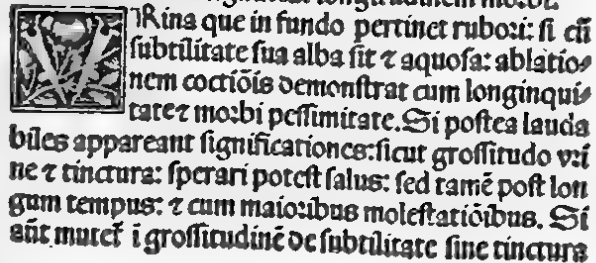 VRina que in fundo pertinet rubori: si cū
subtilitate sua alba sit ⁊ aquosa: ablatio⸗
nem coctiōis demonstrat cum longinqui⸗
tate⁊ morbi pessimitate. Si postea lauda
biles appareant significationes: sicut grossitudo vri
ne ⁊ tinctura: sperari potest salus: sed tamē post lon
gum tempus: ⁊ cum maioribus molestatiōibus. Si
aūt mutet᷑ ī grossitudinē de subtilitate sine tinctura